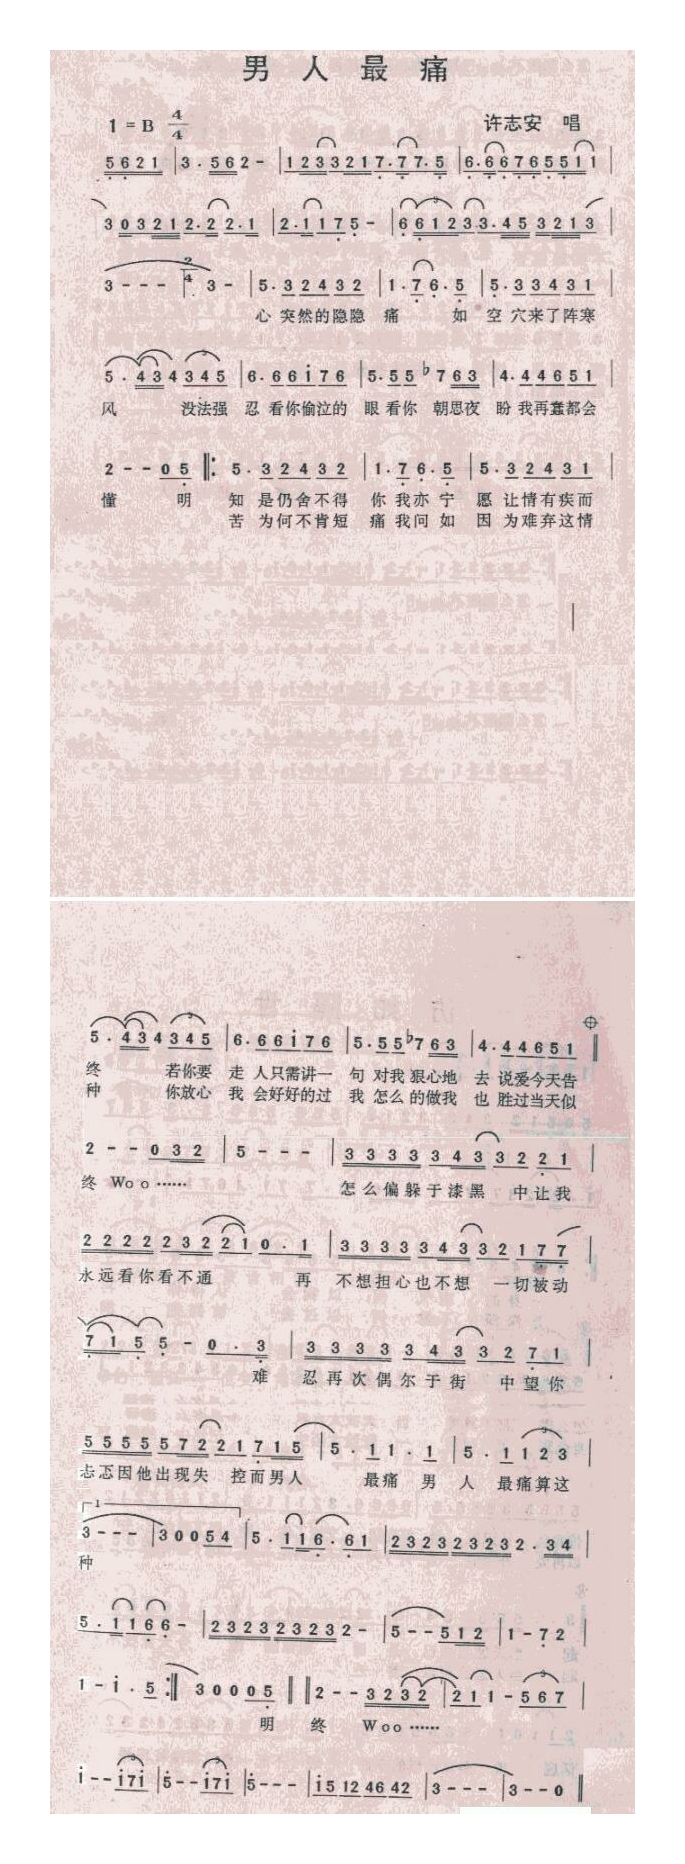 男人最痛
1 = B 4/4 许志安 唱
5 6 2 1 | 3 · 5 6 2 - | 1 2 3 3 2 1 7 · 7 7 · 5 | 6 · 6 6 7 6 5 5 1 1 |
3 0 3 2 1 2 · 2 2 · 1 | 2 · 1 1 7 5 - | 6 6 1 2 3 3 · 4 5 3 2 1 3 |
3 - - - | 2/4 3 - | 5 · 3 2 4 3 2 | 1 · 7 6 · 5 | 5 · 3 3 4 3 1 |
心 突然的隐隐 痛 如 空 穴来了阵寒
5 · 4 3 4 3 4 5 | 6 · 6 6 i 7 6 | 5 · 5 5 ♭7 6 3 | 4 · 4 4 6 5 1 |
风 没法强 忍 看你偷泣的 眼 看你 朝思夜 盼 我再蠢都会
2 - - 0 5 ‖: 5 · 3 2 4 3 2 | 1 · 7 6 · 5 | 5 · 3 2 4 3 1 |
懂 明 知 是仍舍不得 你 我亦 宁 愿 让情有疾而
苦 为何不肯短 痛 我问 如 因 为难弃这情
5 · 4 3 4 3 4 5 | 6 · 6 6 i 7 6 | 5 · 5 5 ♭7 6 3 | 4 · 4 4 6 5 1 ‖
终 若你要 走 人只需讲一 句 对我 狠心地 去 说爱今天告
种 你放心 我 会好好的过 我 怎么 的做我 也 胜过当天似
2 - - 0 3 2 | 5 - - - | 3 3 3 3 3 4 3 3 2 2 1 |
终 Wo o ······ 怎么偏躲于漆黑 中让我
2 2 2 2 2 3 2 2 1 0 · 1 | 3 3 3 3 3 4 3 3 2 1 7 7 |
永远看你看不通 再 不想担心也不想 一切被动
7 1 5 5 - 0 · 3 | 3 3 3 3 3 4 3 3 2 7 1 |
难 忍再次偶尔于街 中望你
5 5 5 5 5 7 2 2 1 7 1 5 | 5 · 1 1 · 1 | 5 · 1 1 2 3 |
忐忑因他出现失 控而男人 最痛 男 人 最痛算这
1
3 - - - | 3 0 0 5 4 | 5 · 1 1 6 · 6 1 | 2 3 2 3 2 3 2 3 2 · 3 4 |
种
5 · 1 1 6 6 - | 2 3 2 3 2 3 2 3 2 - | 5 - - 5 1 2 | 1 - 7 2 |
1 - i · 5 :‖ 3 0 0 0 5 ‖ 2 - - 3 2 3 2 | 2 1 1 - 5 6 7 |
明 终 Woo ······
i - - i 7 i | 5 - - i 7 i | 5 - - - | i 5 1 2 4 6 4 2 | 3 - - - | 3 - - 0 ‖